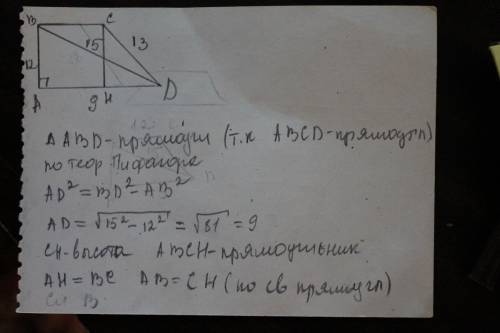 B C
15 13
12
A 9 H D
Δ ABD - прямоуг (т.к ABCD - прямоуг)
по теор Пифагора
AD² = BD² - AB²
AD = √15² - 12² = √81 = 9
CH - высота ABCH - прямоуг
AH = BC AB = CH (по св прямоуг)